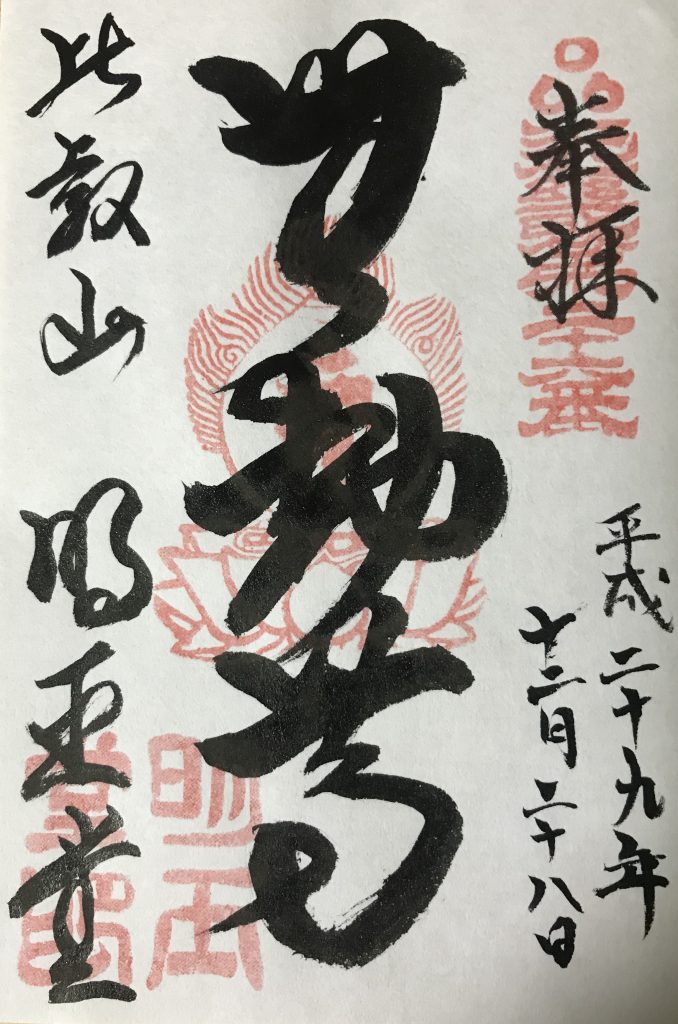 奉拝
平成二十九年
十二月二十八日
無動尊
比叡山 明王堂
明王